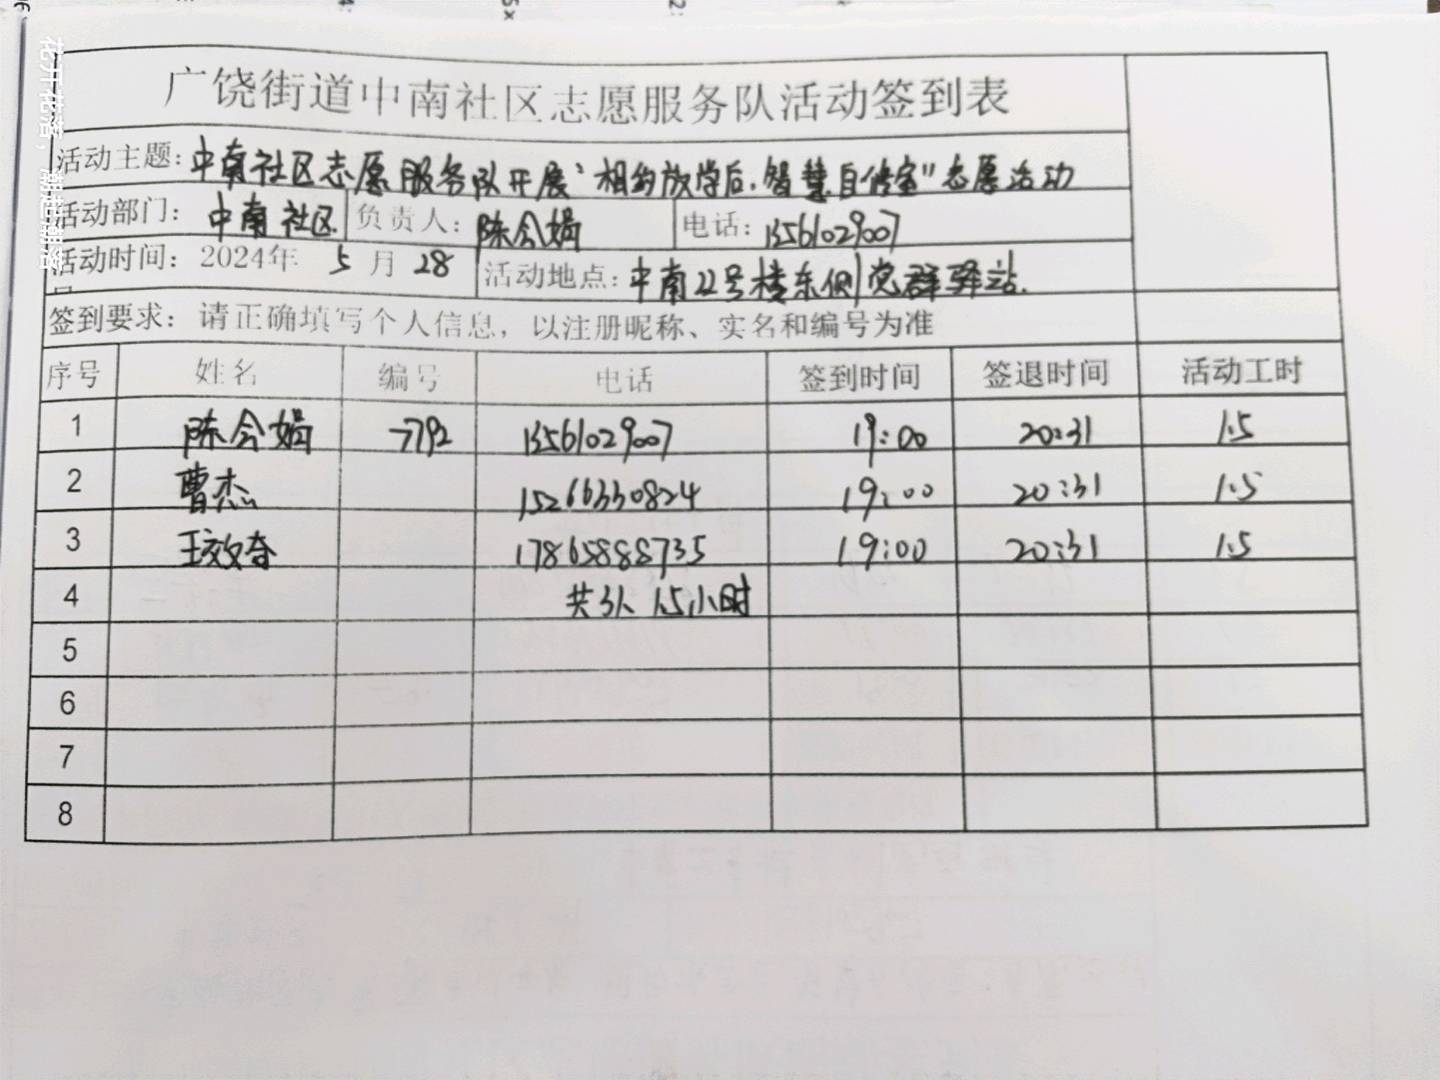 广饶街道中南社区志愿服务队活动签到表
活动主题:中南社区志愿服务队开展"相约放学后.智慧自修室"志愿活动
活动部门: 中南社区 负责人: 陈会娟 电话: 13561029007
活动时间: 2024年 5 月 28 活动地点: 中南22号楼东侧党群驿站.
签到要求: 请正确填写个人信息，以注册昵称、实名和编号为准
序号 姓名 编号 电话 签到时间 签退时间 活动工时
1 陈会娟 7792 13561029007 19:00 20:31 1.5
2 曹杰 15266330824 19:00 20:31 1.5
3 王效春 17865888735 19:00 20:31 1.5
4 共3人 1.5小时
5
6
7
8
花开花落，